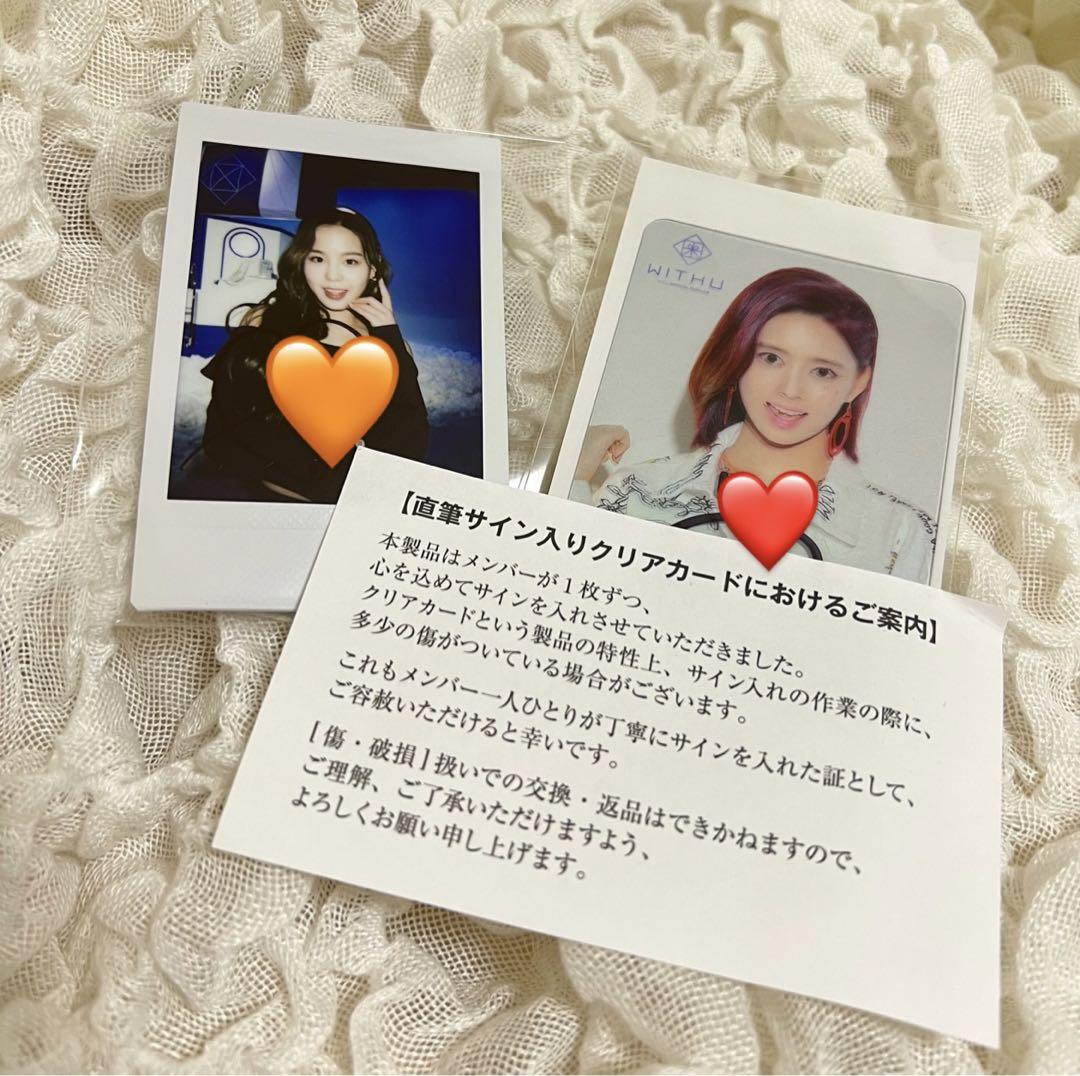 WITHU
【直筆サイン入りクリアカードにおけるご案内】
本製品はメンバーが1枚ずつ、
心を込めてサインを入れさせていただきました。
クリアカードという製品の特性上、サイン入れの作業の際に、
多少の傷がついている場合がございます。
これもメンバー一人ひとりが丁寧にサインを入れた証として、
ご容赦いただけると幸いです。
[傷・破損]扱いでの交換・返品はできかねますので、
ご理解、ご了承いただけますよう、
よろしくお願い申し上げます。